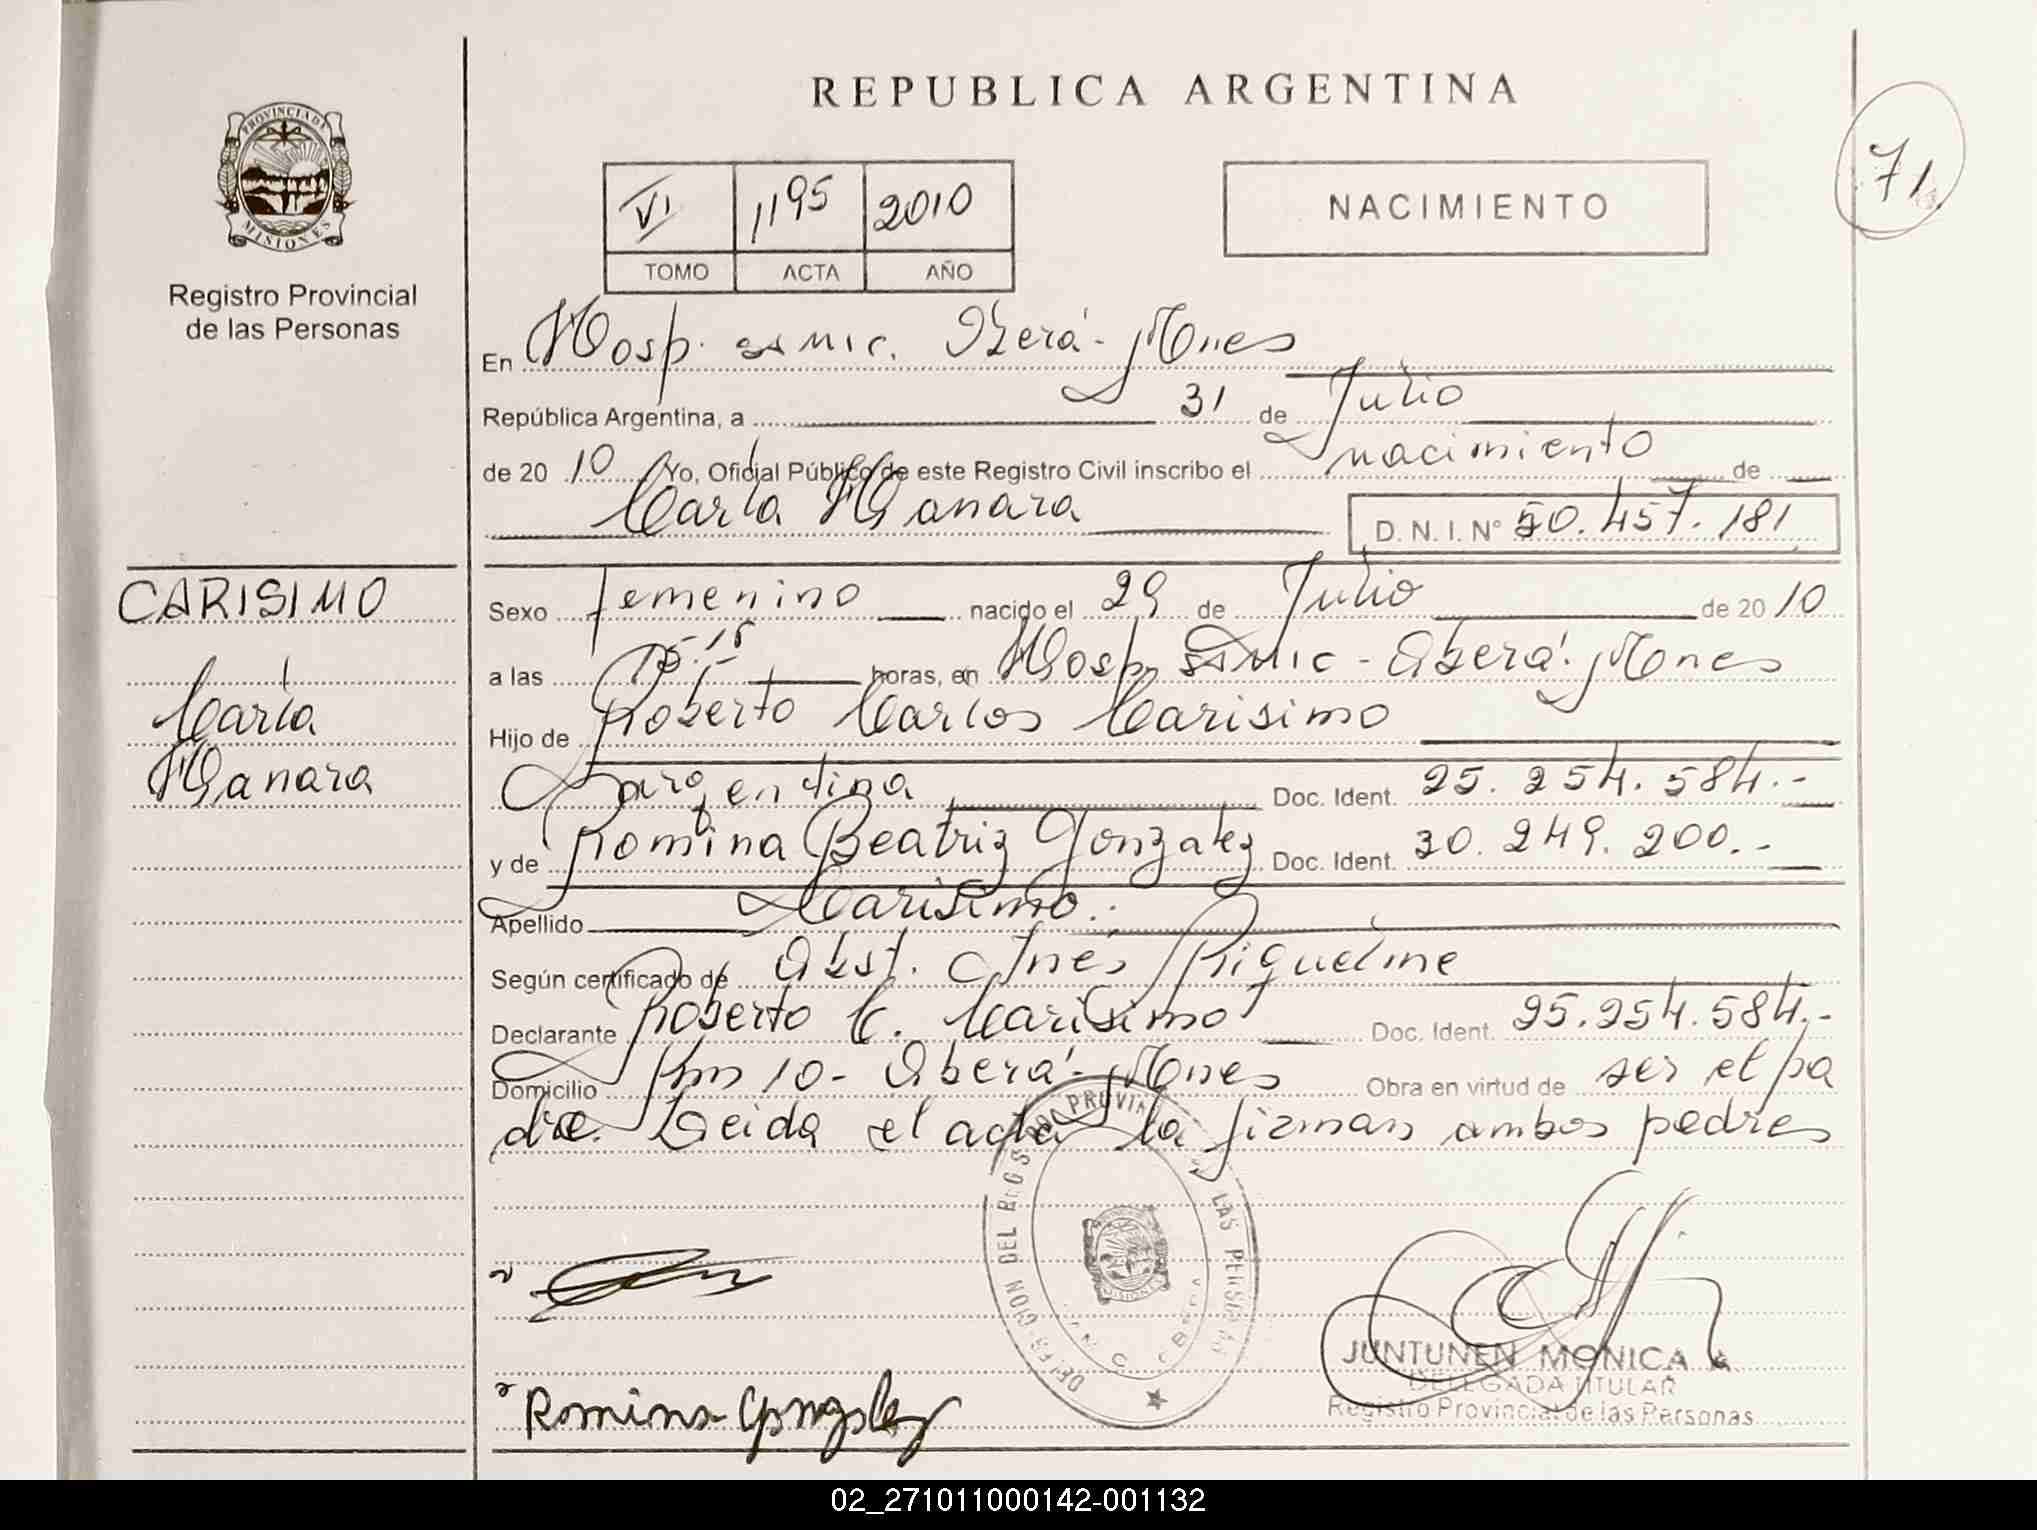 REPUBLICA ARGENTINA
PROVINCIA DE MISIONES
Registro Provincial
de las Personas
VI 1195 2010
TOMO ACTA AÑO
NACIMIENTO
71
En Hosp. SAMIC. Oberá - Mnes
República Argentina, a 31 de Julio
de 2010 Yo, Oficial Público de este Registro Civil inscribo el nacimiento de
Carla Manara D. N. I. Nº 50.457.181
CARISIMO
Carla
Manara
Sexo femenino nacido el 29 de Julio de 2010
a las 15:15 horas, en Hosp. SAMIC - Oberá - Mnes
Hijo de Roberto Carlos Carisimo
Argentina Doc. Ident. 25.254.584.-
y de Romina Beatriz Gonzalez Doc. Ident. 30.249.200.-
Apellido Carisimo.
Según certificado de Obst. Inés Riquelme
Declarante Roberto C. Carisimo Doc. Ident. 25.254.584.-
Domicilio Km 10 - Oberá - Mnes Obra en virtud de ser el pa
dre. Leida el acta la firman ambos padres
Romina Gonzalez
JUNTUNEN MONICA
DELEGADA TITULAR
Registro Provincial de las Personas
02_271011000142-001132